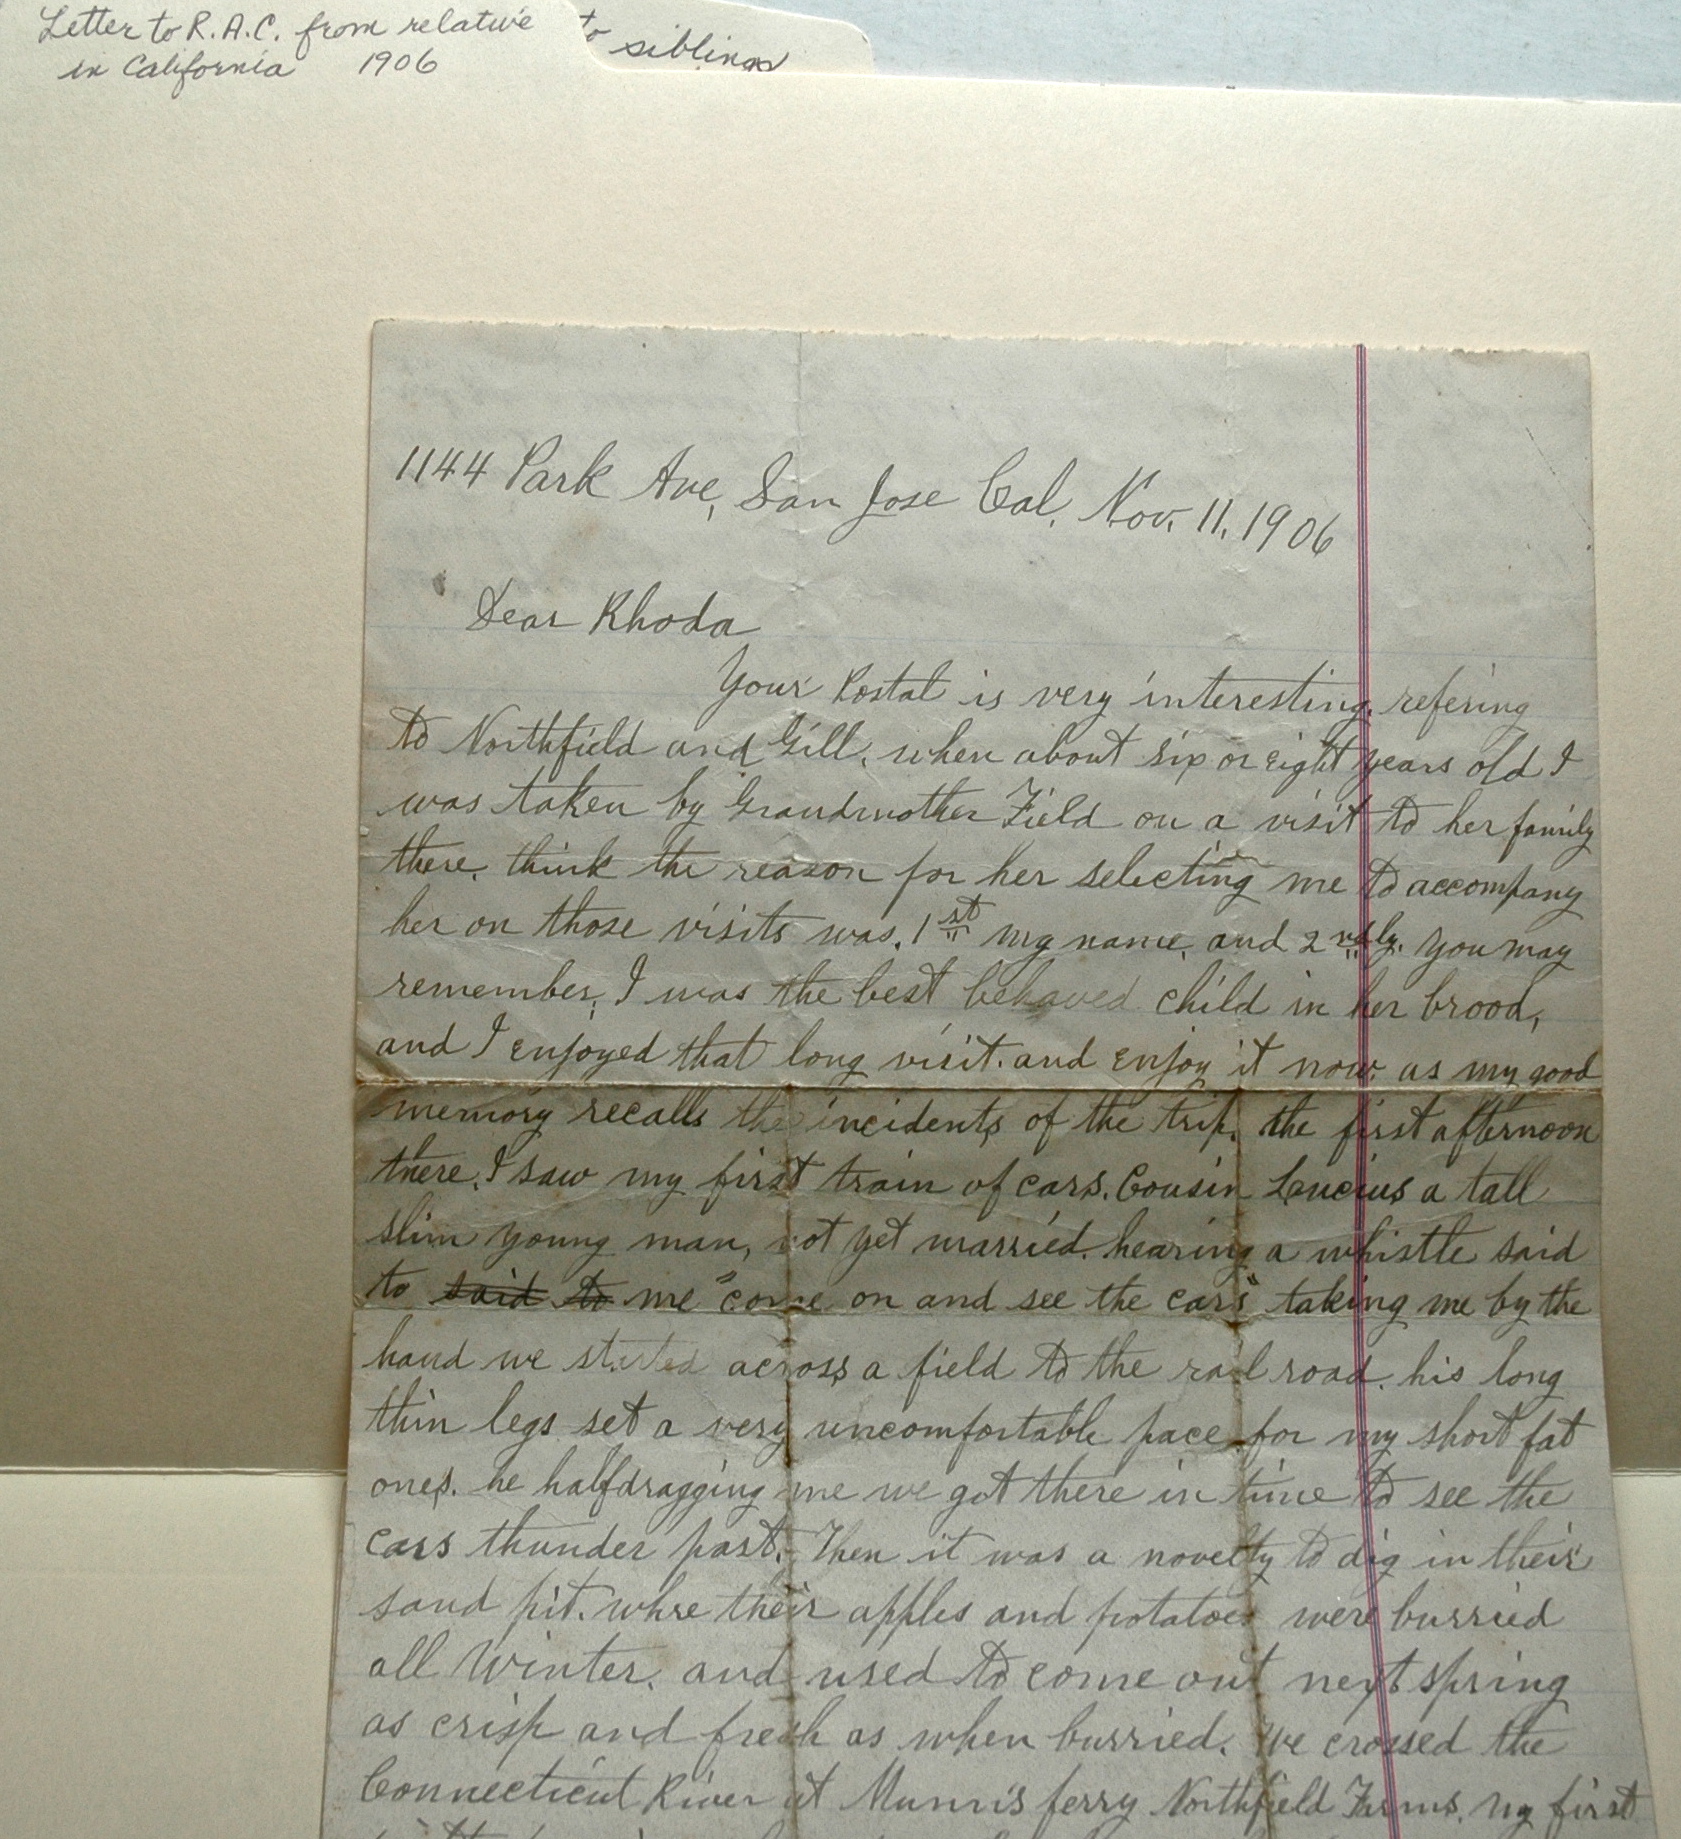 Letter to R.A.C. from relative
in California 1906
to siblings
1144 Park Ave, San Jose Cal. Nov. 11, 1906
Dear Rhoda
Your Postal is very interesting, refering
to Northfield and Gill, when about six or eight years old I
was taken by Grandmother Field on a visit to her family
there. think the reason for her selecting me to accompany
her on those visits was. 1st my name, and 2ndly. you may
remember, I was the best behaved child in her brood,
and I enjoyed that long visit. and enjoy it now. as my good
memory recalls the incidents of the trip. the first afternoon
there, I saw my first train of cars. Cousin Loucius a tall
slim young man, not yet married. hearing a whistle said
to said to me "come on and see the cars" taking me by the
hand we started across a field to the rail road. his long
thin legs set a very uncomfortable pace for my short fat
ones. he halfdragging me we got there in time to see the
cars thunder past. Then it was a novelty to dig in their
sand pit. whre their apples and potatoes were burried
all Winter. and used to come out next spring
as crisp and fresh as when burried. We crossed the
Connecticut River at Munn's ferry Northfield Farms. my first